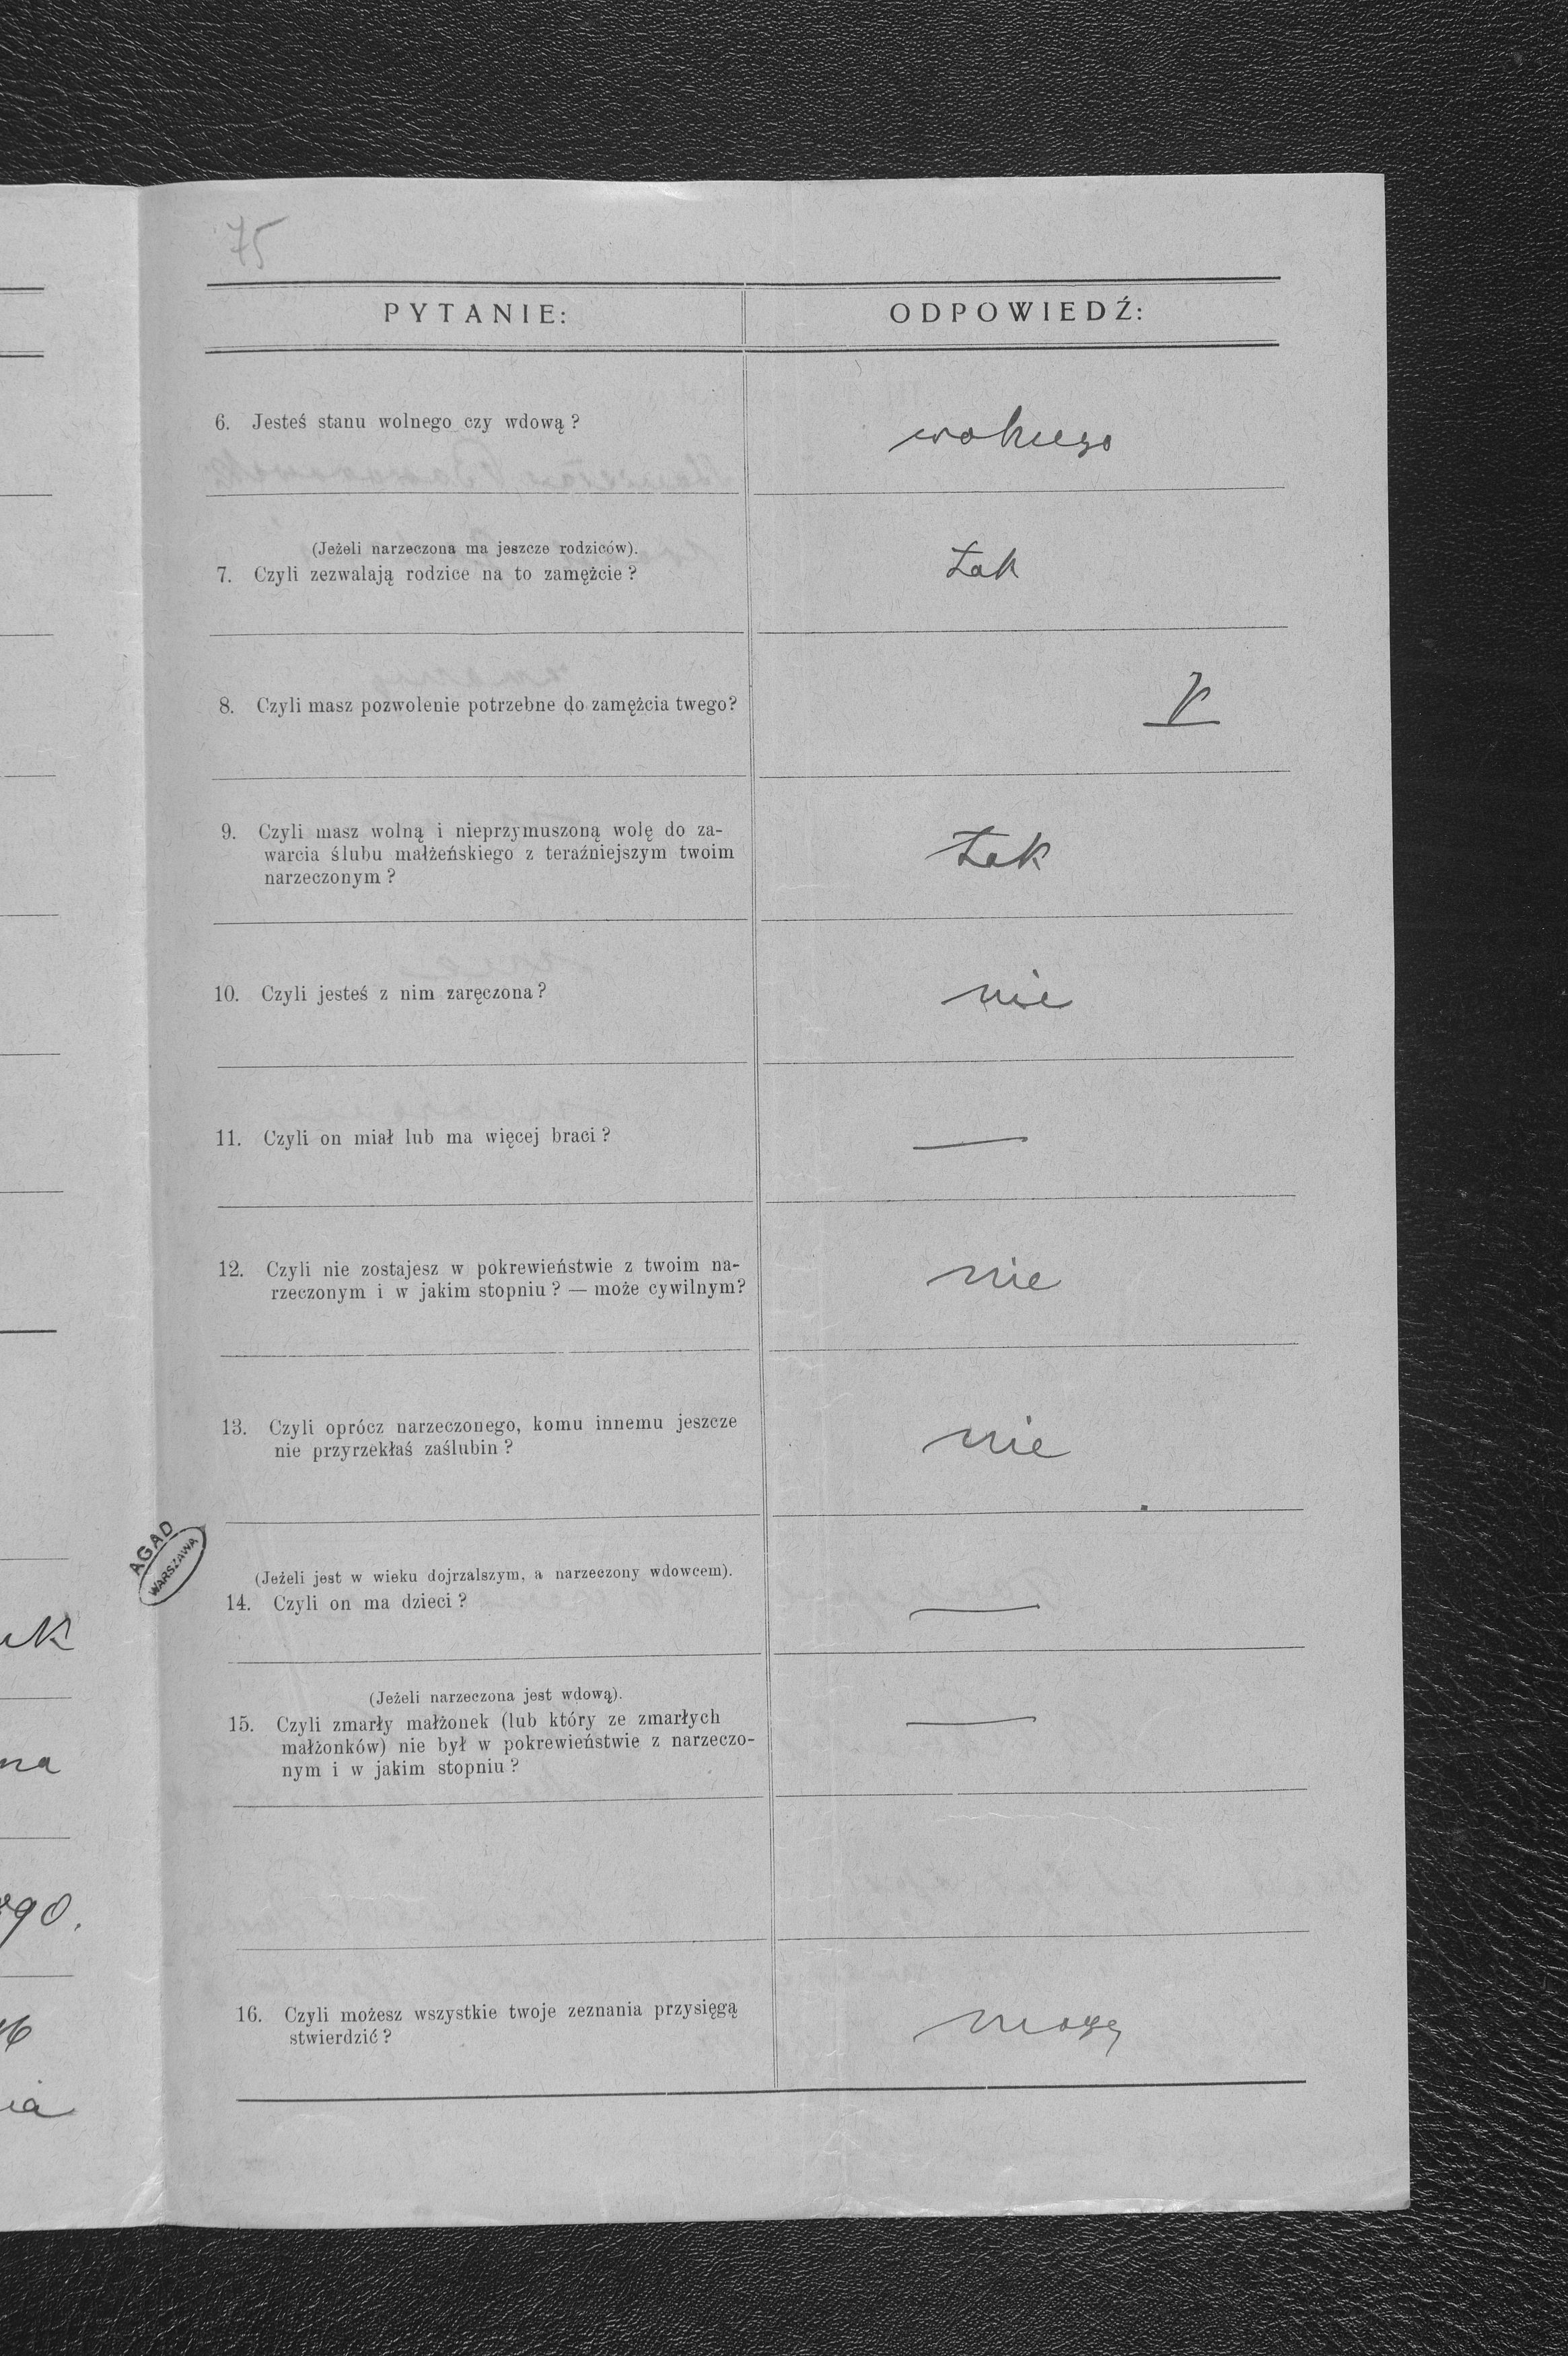 75
PYTANIE: ODPOWIEDŹ:
6. Jesteś stanu wolnego czy wdową? wolnego
(Jeżeli narzeczona ma jeszcze rodziców).
7. Czyli zezwalają rodzice na to zamężcie? tak
8. Czyli masz pozwolenie potrzebne do zamężcia twego?
9. Czyli masz wolną i nieprzymuszoną wolę do za-
warcia ślubu małżeńskiego z teraźniejszym twoim
narzeczonym? tak
10. Czyli jesteś z nim zaręczona? nie
11. Czyli on miał lub ma więcej braci? —
12. Czyli nie zostajesz w pokrewieństwie z twoim na-
rzeczonym i w jakim stopniu? — może cywilnym? nie
13. Czyli oprócz narzeczonego, komu innemu jeszcze
nie przyrzekłaś zaślubin? nie
AGAD
WARSZAWA
(Jeżeli jest w wieku dojrzalszym, a narzeczony wdowcem).
14. Czyli on ma dzieci? —
(Jeżeli narzeczona jest wdową).
15. Czyli zmarły małżonek (lub który ze zmarłych —
małżonków) nie był w pokrewieństwie z narzeczo-
nym i w jakim stopniu?
16. Czyli możesz wszystkie twoje zeznania przysięgą
stwierdzić? mogę